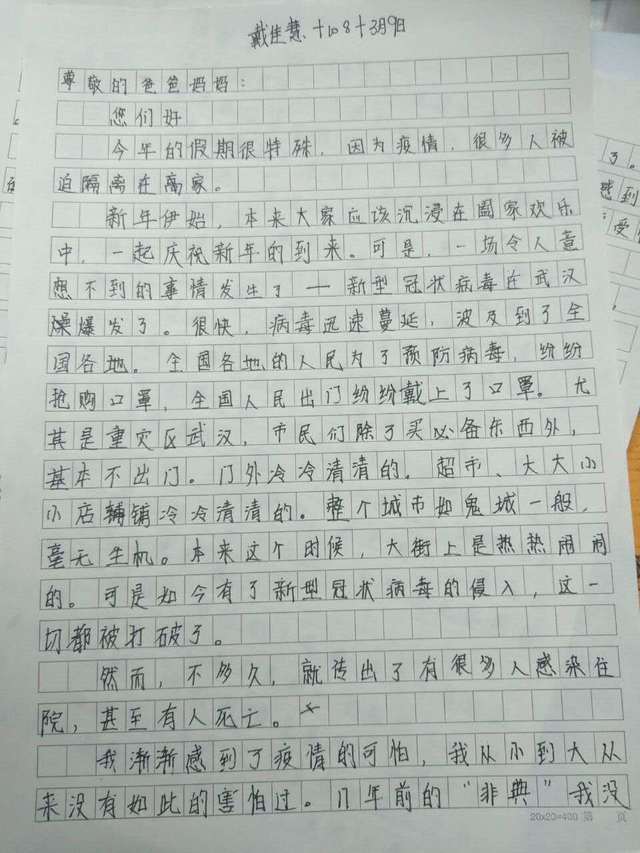 戴佳慧 +108+3月9日
尊敬的爸爸妈妈：
您们好
今年的假期很特殊，因为疫情，很多人被
迫隔离在离家。
新年伊始，本来大家应该沉浸在阖家欢乐
中，一起庆祝新年的到来。可是，一场令人意
想不到的事情发生了——新型冠状病毒在武汉
燥爆发了。很快，病毒迅速蔓延，波及到了全
国各地。全国各地的人民为了预防病毒，纷纷
抢购口罩，全国人民出门纷纷戴上了口罩。尤
其是重灾区武汉，市民们除了买必备东西外，
基本不出门。门外冷冷清清的。超市、大大小
小店铺铺冷冷清清的。整个城市如鬼城一般，
毫无生机。本来这个时候，大街上是热热闹闹
的。可是如今有了新型冠状病毒的侵入，这一
切都被打破了。
然而，不多久，就传出了有很多人感染住
院，甚至有人死亡。
我渐渐感到了疫情的可怕，我从小到大从
来没有如此的害怕过。几年前的“非典”我没
20×20=400 第 页
了。
感到
受